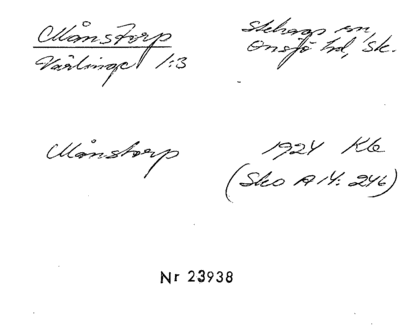 Månstorp
Västinge 1:3
Skarhult sn,
Onsjö hd, Sk.
Månstorp
1924 Kle
(Sko A 14: 246)
Nr 23938